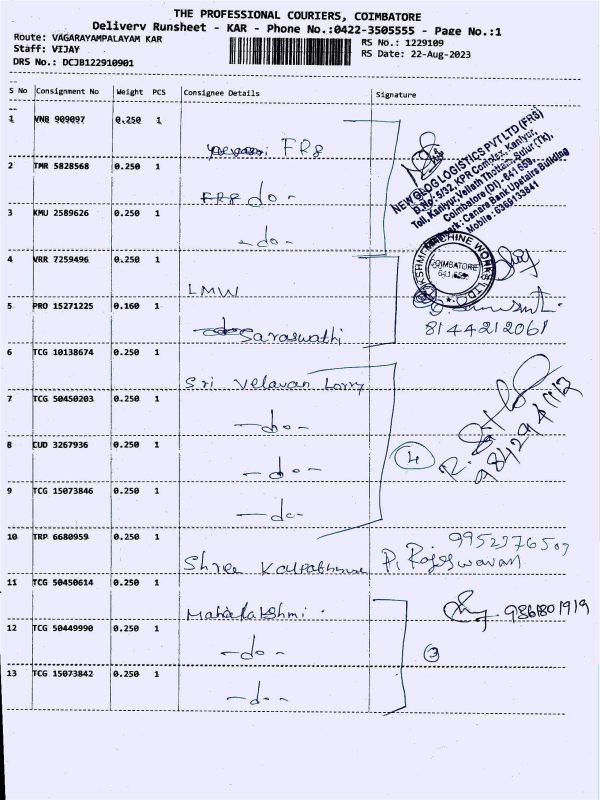 THE PROFESSIONAL COURIERS, COIMBATORE
Delivery Runsheet - KAR - Phone No.:0422-3505555 - Page No.:1
Route: VAGARAYAMPALAYAM KAR
RS No.: 1229109
Staff: VIJAY
RS Date: 22-Aug-2023
DRS No.: DCJB122910901
S No Consignment No Weight PCS Consignee Details Signature
1 VNB 909097 0.250 1
FRS
2 TMR 5828568 0.250 1
FRS do -
3 KMU 2589626 0.250 1
- do -
NEW GLOG LOGISTICS PVT LTD (FRS)
D.No: 5/32, KPR Complex, Kaniyur,
Toll, Kaniyur, Vellath Thottam, Sulur (Tk),
Coimbatore (Dt) - 641 659.
Canara Bank Upstairs Building
Mobile : 6369133841
4 VRR 7259496 0.250 1
LMW
LAKSHMI MACHINE WORKS LTD
COIMBATORE
641 659
5 PRO 15271225 0.160 1
do Saraswathi
8144212061
6 TCG 10138674 0.250 1
Sri Velavan Lorry
7 TCG 50450203 0.250 1
- do -
8 CUD 3267936 0.250 1
- do -
4
9 TCG 15073846 0.250 1
- do -
10 TRP 6680959 0.250 1
Shree
P. Rajeswaran
11 TCG 50450614 0.250 1
Mahalakshmi
9361801919
12 TCG 50449990 0.250 1
- do -
3
13 TCG 15073842 0.250 1
- do -